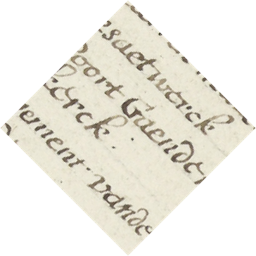 saetwerck
poort Gaende
kerck.
ement vande